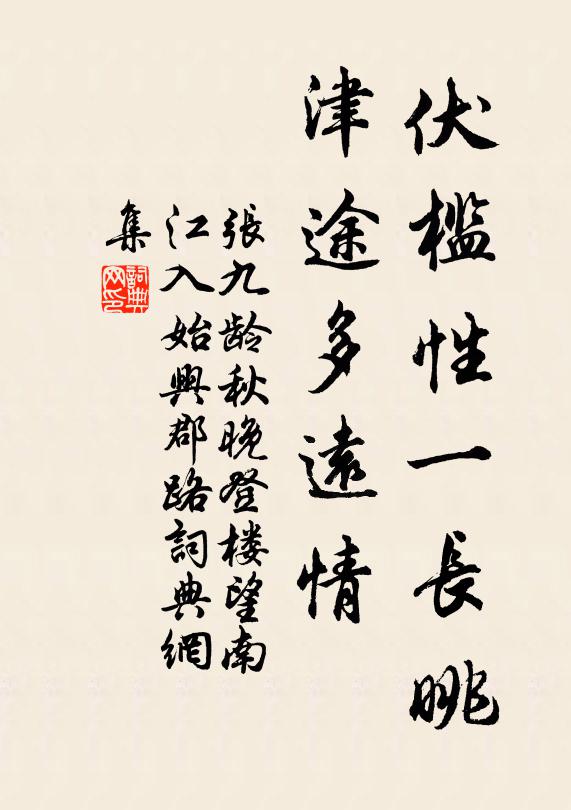 伏檻性一長眺
津途多遠情
張九龄秋晚登楼望南
江入始興郡路詞典網
集
詞典
网印